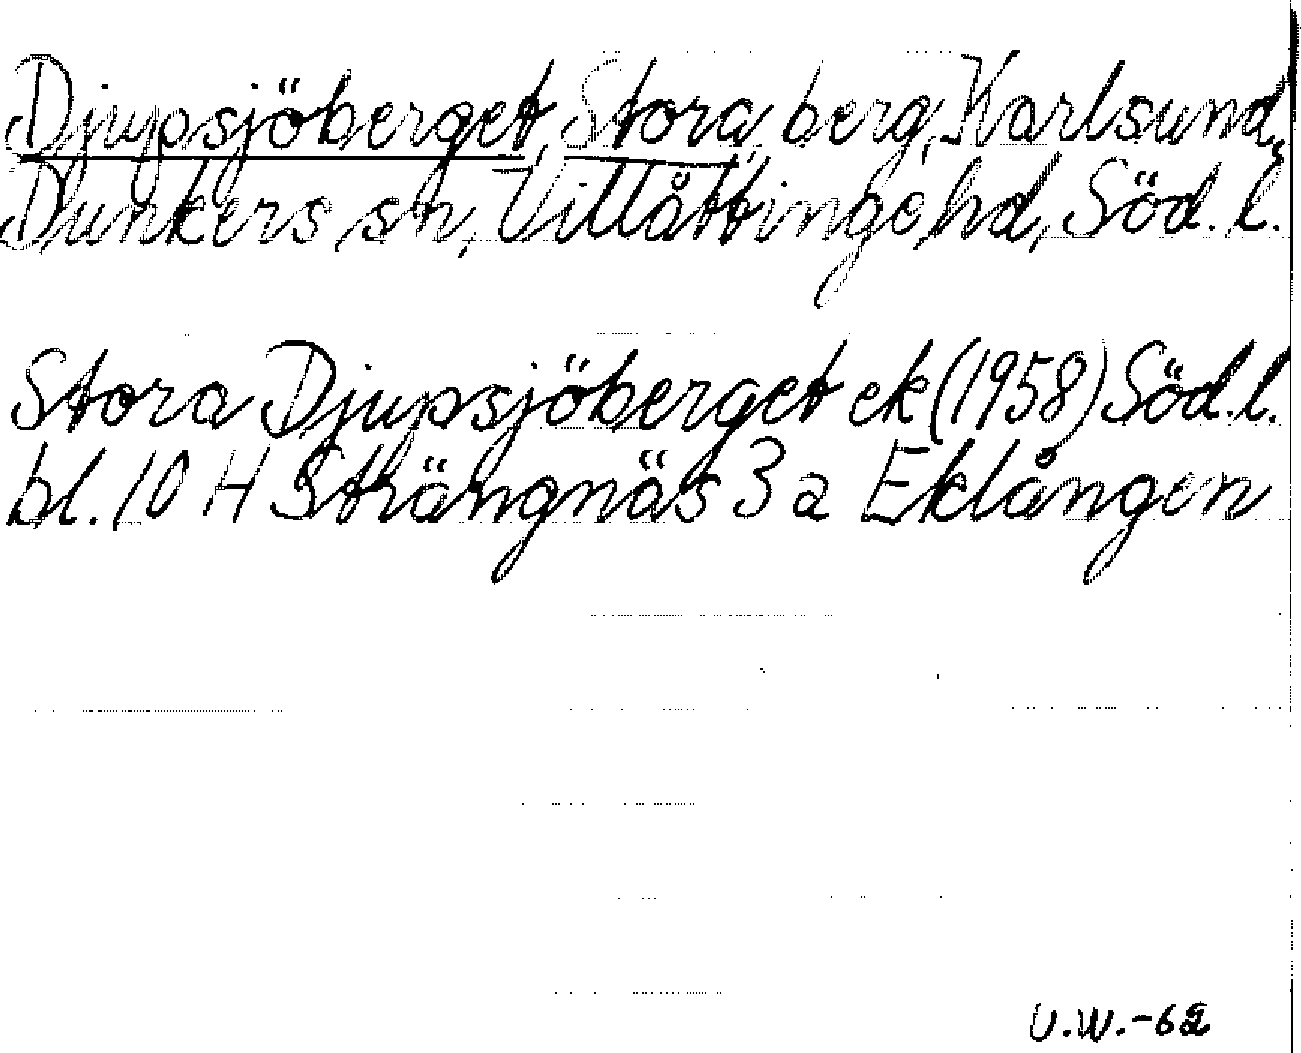 Djupsjöberget, Stora, berg, Karlsund,
Dunkers sn, Villåttinge hd, Söd. l.
Stora Djupsjöberget ek (1958) Söd. l.
bl. 10 H Strängnäs 3 a Eklången
U.W.-62